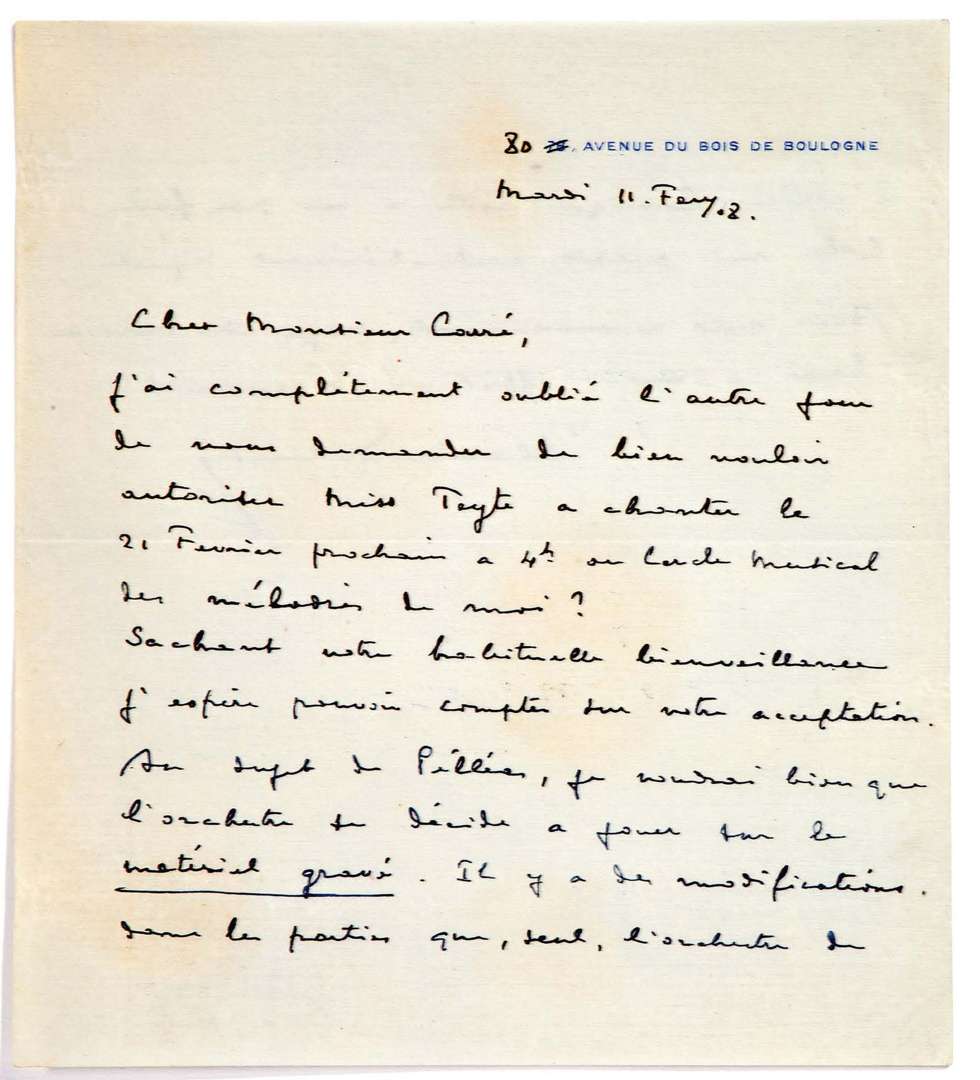 80, AVENUE DU BOIS DE BOULOGNE
Mardi 11. Fev/08.
Cher Monsieur Carré,
j'ai complétement oublié l'autre jour
de vous demander de bien vouloir
autoriser Miss Teyte a chanter le
21 Fevrier prochain a 4h au Cercle Musical
des mélodies de moi ?
Sachant votre habituelle bienveillance
j'espère pouvoir compter sur votre acceptation.
Au sujet de Pélléas, je voudrai bien que
l'orchestre se décide a jouer sur le
matériel gravé. Il y a des modifications.
dans les parties que, seul, l'orchestre de